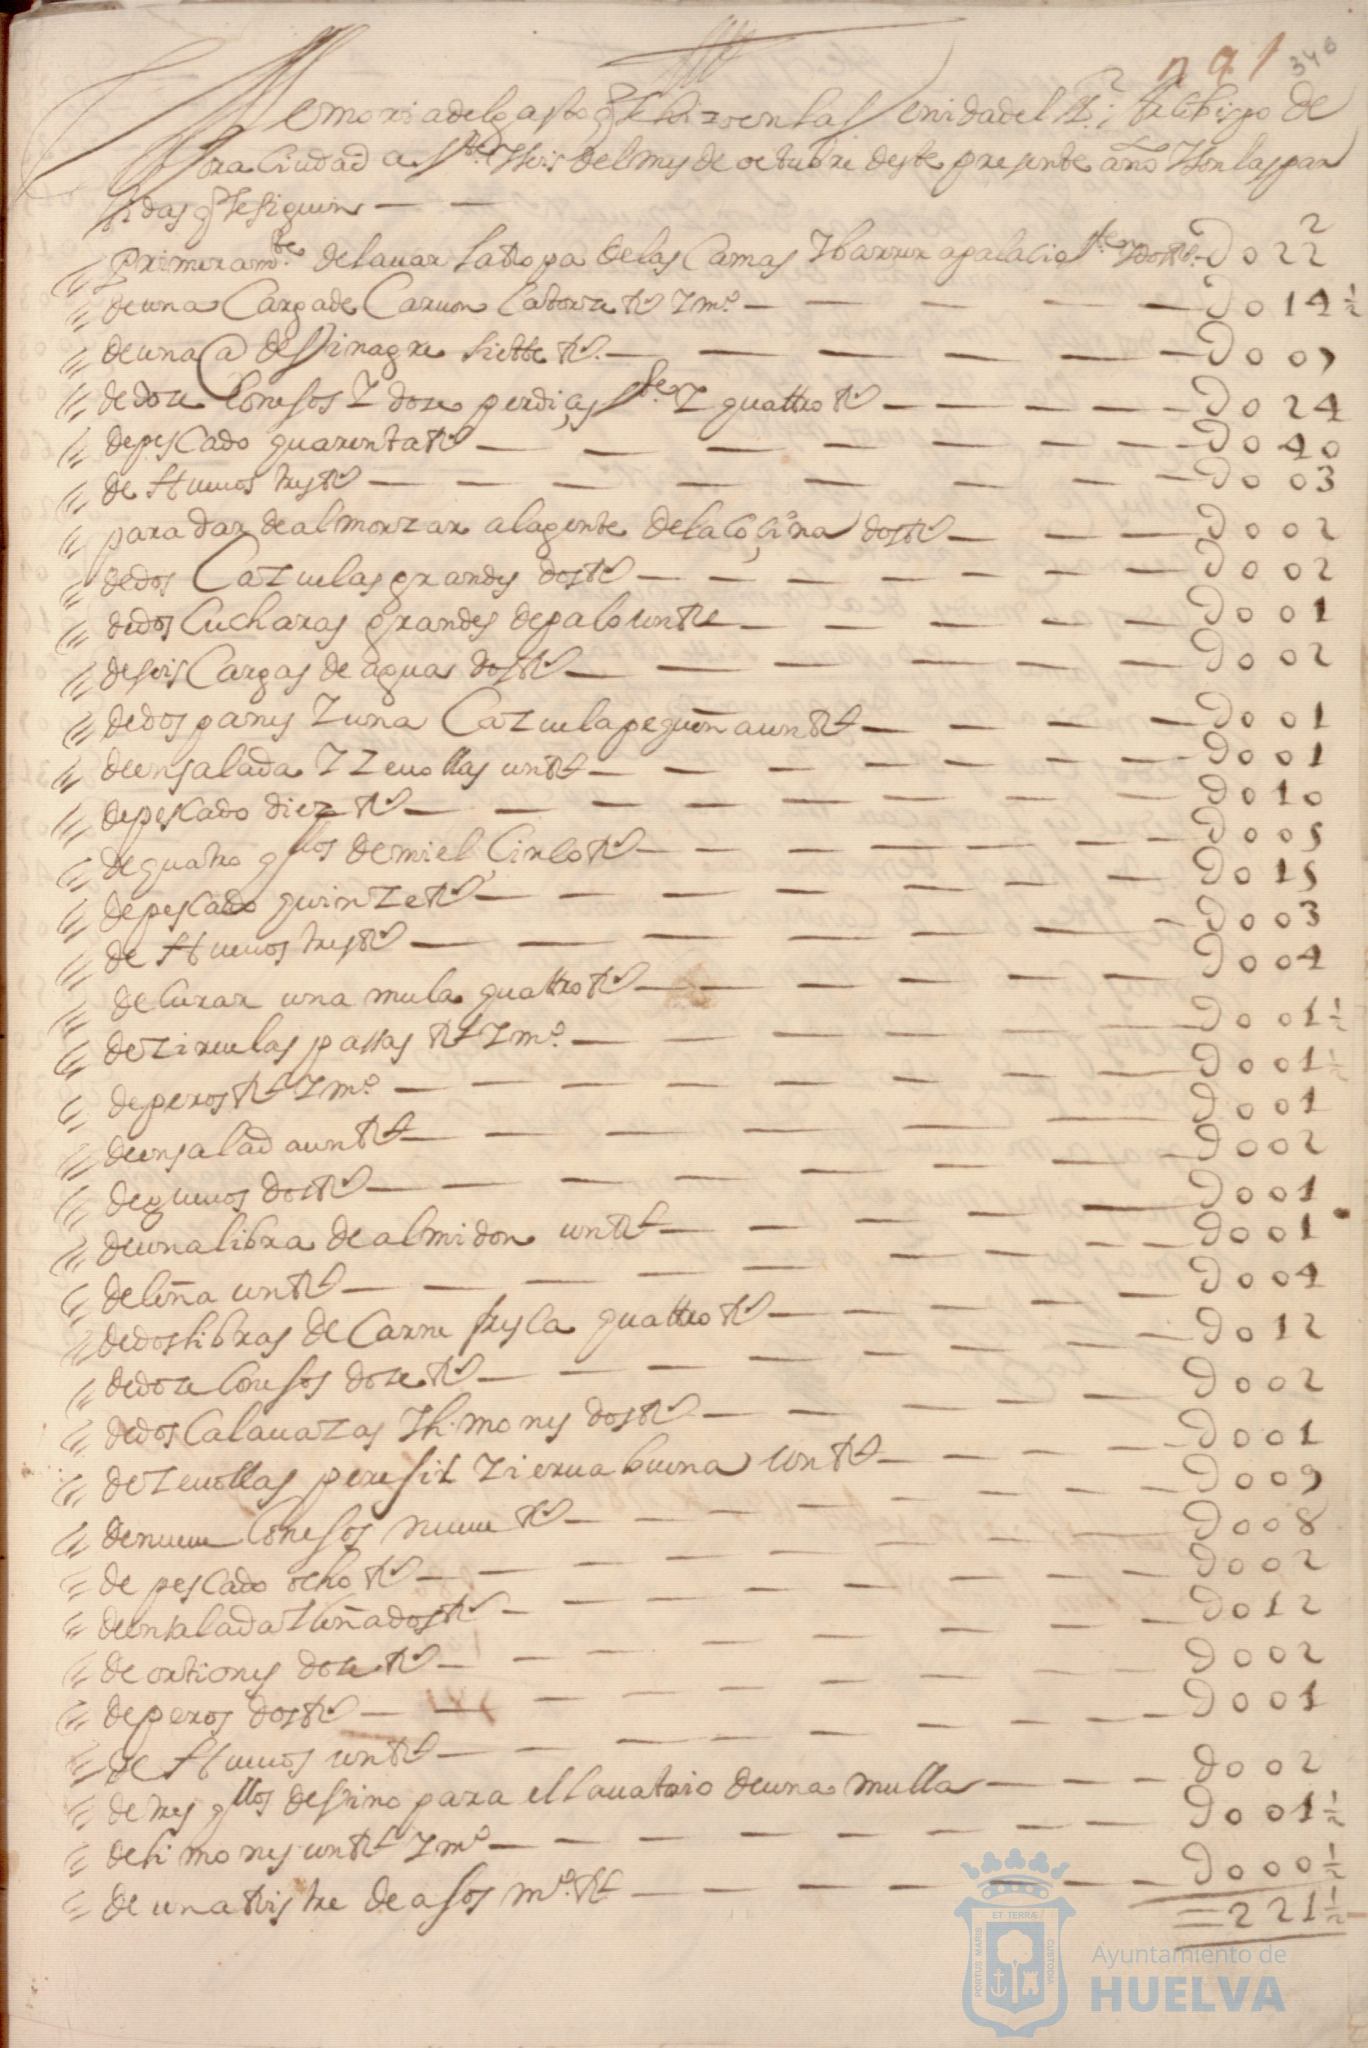 291 340
Memoria del gasto q Se hizo en la Venida del Sr. Arcobispo de
Sra Ciudad a Vte Y seis del mes de octubre deste presente año Y son las par
tidas q Se siguen
Primeramte de lauar la Ropa de las Camas Y barrer a palacio Vte Y dos Rs. D 0 22
de una Carga de Caruon Catorze Rs Y mo. D 0 14 ½
de una @ de Vinagre siette Rs. D 0 07
de doze Conejos Y doze perdiçes Vte Y quattro Rs D 0 24
de pescado quarenta Rs D 0 40
de Hueuos tres Rs D 0 03
para dar de almorzar a la gente de la Coçina dos Rs D 0 02
de dos Cazuelas grandes dos Rs D 0 02
de dos Cucharas grandes de palo un Rl D 0 01
de seis Cargas de agua dos Rs D 0 02
de dos panes Y una Cazuela pequeña un Rl D 0 01
de ensalada Y Zeuollas un Rl D 0 01
de pescado diez Rs D 0 10
de quatro qllos de miel Cinco Rs D 0 05
de pescado quinze Rs D 0 15
de Hueuos tres Rs D 0 03
de Curar una mula quattro Rs D 0 04
de Ziruelas passas Rl Y mo. D 0 01 ½
de peros Rl Y mo. D 0 01 ½
de ensalada un Rl D 0 01
de gueuos dos Rs D 0 02
de una libra de almidon un Rl D 0 01
de leña un Rl D 0 01
de dos libras de Carne fresca quattro Rs D 0 04
de doze Conejos doze Rs D 0 12
de dos Calauazas Y limones dos Rs D 0 02
de Zeuollas peresil Y ierua buena un Rl D 0 01
de nueue Conejos nueue Rs D 0 09
de pescado ocho Rs D 0 08
de ensalada Y leña dos Rs D 0 02
de ostiones doze Rs D 0 12
de peros dos Rs D 0 02
de Hueuos un Rl D 0 01
de tres qllos de Vino para el lauatorio de una mulla D 0 02
de limones un Rl Y mo D 0 01 ½
de una Ristre de ajos mo. Rl D 0 00 ½
= 221 ½
PORTUS MARIS ET TERRÆ CUSTODIA
Ayuntamiento de
HUELVA